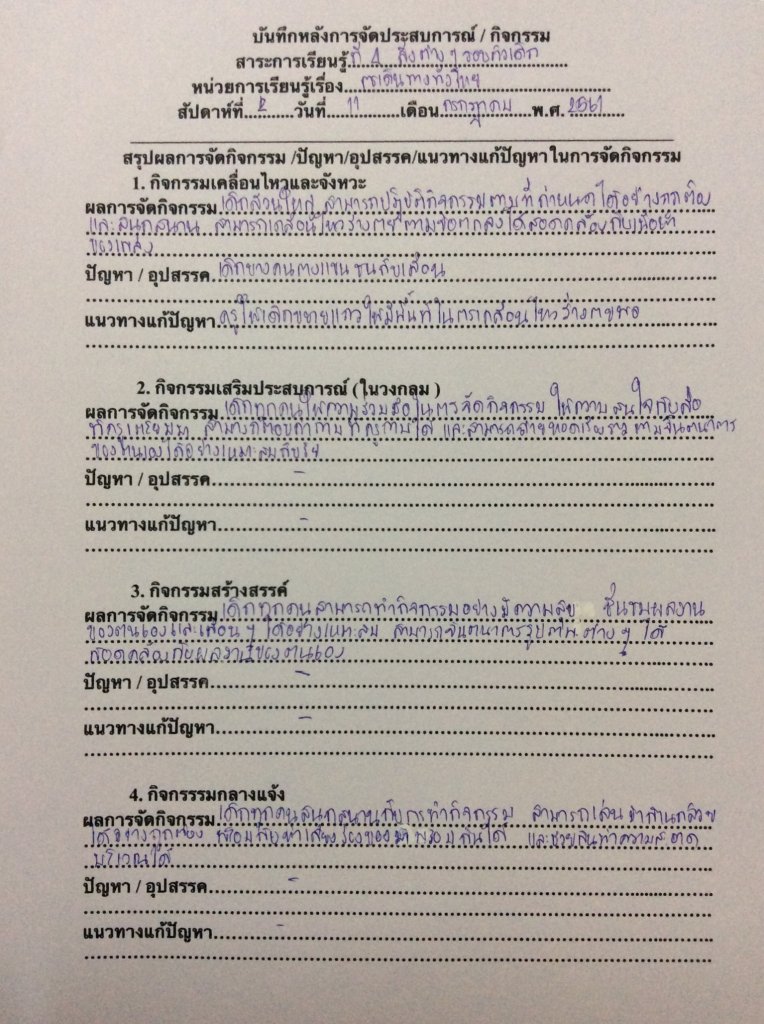 บันทึกหลังการจัดประสบการณ์ / กิจกรรม
สาระการเรียนรู้ ที่ 4 สิ่งต่างๆ รอบตัวเด็ก
หน่วยการเรียนรู้เรื่อง การเดินทางทั่วไทย
สัปดาห์ที่ 2 วันที่ 11 เดือน กรกฎาคม พ.ศ. 2561
สรุปผลการจัดกิจกรรม /ปัญหา/อุปสรรค/แนวทางแก้ปัญหาในการจัดกิจกรรม
1. กิจกรรมเคลื่อนไหวและจังหวะ
ผลการจัดกิจกรรม เด็กส่วนใหญ่ สามารถปฏิบัติกิจกรรมตามที่กำหนดได้อย่างถูกต้อง
และสนุกสนาน สามารถเคลื่อนไหวร่างกายตามข้อตกลงได้สอดคล้องกับเนื้อหา
ของเพลง
ปัญหา / อุปสรรค เด็กบางคนกางแขนชนกับเพื่อน
แนวทางแก้ปัญหา ครูให้เด็กขยายแถวให้มีพื้นที่ในการเคลื่อนไหวร่างกายพอ
2. กิจกรรมเสริมประสบการณ์ (ในวงกลม )
ผลการจัดกิจกรรม เด็กทุกคนให้ความร่วมมือในการจัดกิจกรรม ให้ความสนใจกับสื่อ
ที่ครูเตรียมมา สามารถตอบคำถามที่ครูถามได้ และสามารถถ่ายทอดเรื่องราวตามจินตนาการ
ของตนเองได้อย่างเหมาะสมกับวัย
ปัญหา / อุปสรรค -
แนวทางแก้ปัญหา -
3. กิจกรรมสร้างสรรค์
ผลการจัดกิจกรรม เด็กทุกคนสามารถทำกิจกรรมอย่างมีความสุข ชื่นชมผลงาน
ของตนเองและเพื่อนๆ ได้อย่างเหมาะสม สามารถจินตนาการรูปภาพต่างๆ ได้
สอดคล้องกับผลงานของตนเอง
ปัญหา / อุปสรรค -
แนวทางแก้ปัญหา -
4. กิจกรรรมกลางแจ้ง
ผลการจัดกิจกรรม เด็กทุกคนสนุกสนานกับการทำกิจกรรม สามารถเล่นม้าก้านกล้วย
ได้อย่างถูกต้อง พร้อมกับทำเสียงร้องของม้าพร้อมกันได้ และช่วยกันทำความสะอาด
บริเวณได้
ปัญหา / อุปสรรค -
แนวทางแก้ปัญหา -